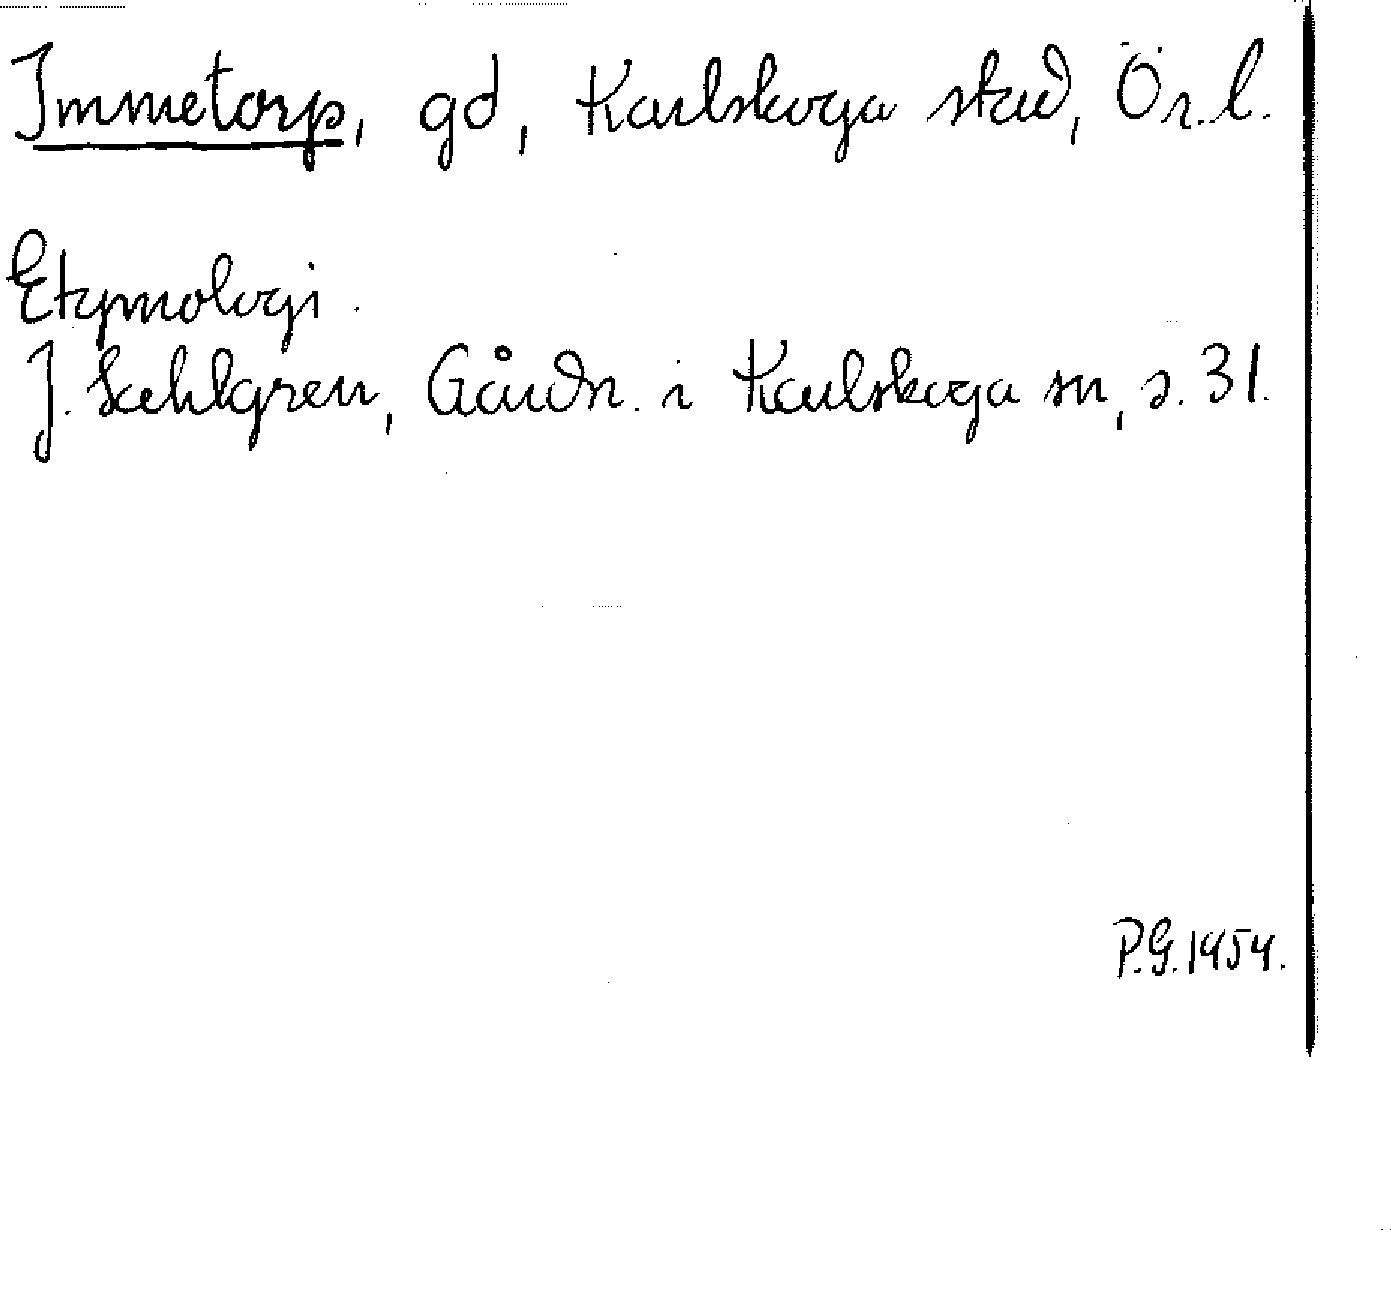 Immetorp, gd, Karlskoga stad, Ör. l.
Etymologi.
J. Sahlgren, Gårdn. i Karlskoga sn, s. 31.
P.G. 1954.